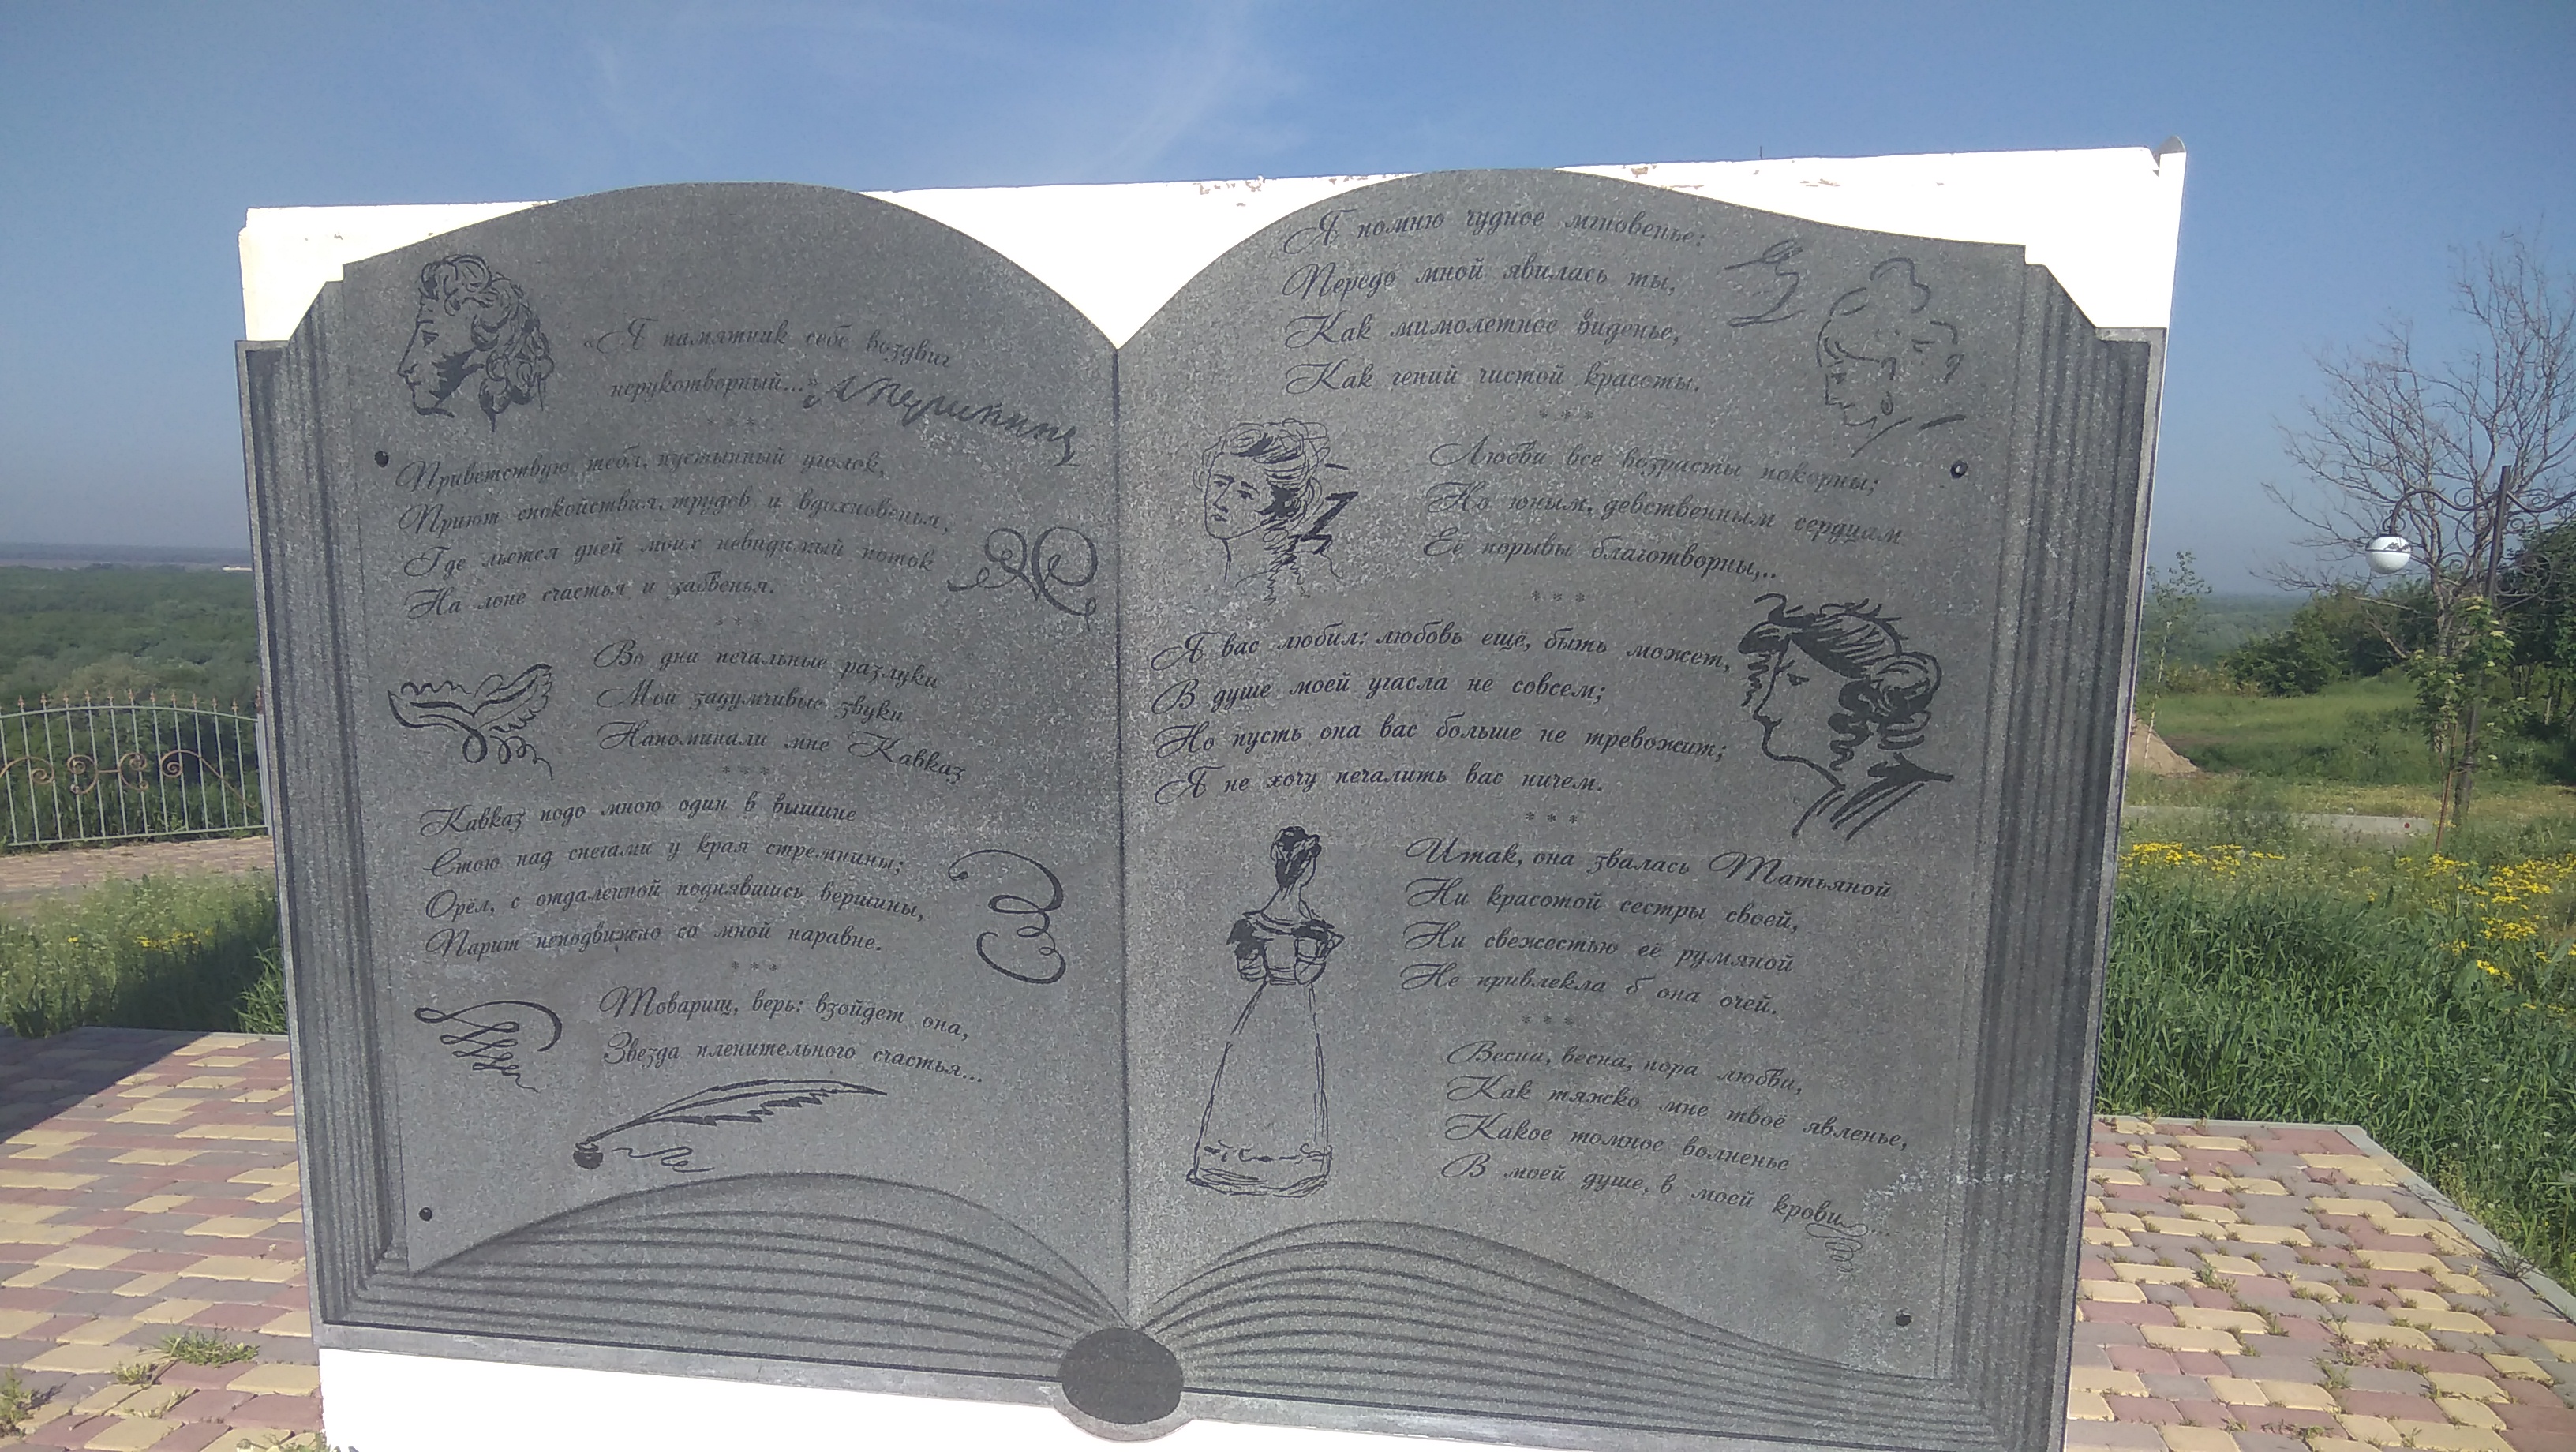 «Я памятник себе воздвиг
нерукотворный...»
А Пушкинъ
* * *
Приветствую тебя, пустынный уголок,
Приют спокойствия, трудов и вдохновенья,
Где льется дней моих невидимый поток
На лоне счастья и забвенья.
* * *
Во дни печальные разлуки
Мои задумчивые звуки
Напоминали мне Кавказ
* * *
Кавказ подо мною один в вышине
Стою над снегами у края стремнины;
Орёл, с отдаленной поднявшись вершины,
Парит неподвижно со мной наравне.
* * *
Товарищ, верь: взойдет она,
Звезда пленительного счастья...
Я помню чудное мгновенье:
Передо мной явилась ты,
Как мимолетное виденье,
Как гений чистой красоты.
* * *
Любви все возрасты покорны;
Но юным, девственным сердцам
Её порывы благотворны,..
* * *
Я вас любил: любовь ещё, быть может,
В душе моей угасла не совсем;
Но пусть она вас больше не тревожит;
Я не хочу печалить вас ничем.
* * *
Итак, она звалась Татьяной
Ни красотой сестры своей,
Ни свежестью её румяной
Не привлекла б она очей.
* * *
Весна, весна, пора любви,
Как тяжко мне твоё явленье,
Какое томное волненье
В моей душе, в моей крови...